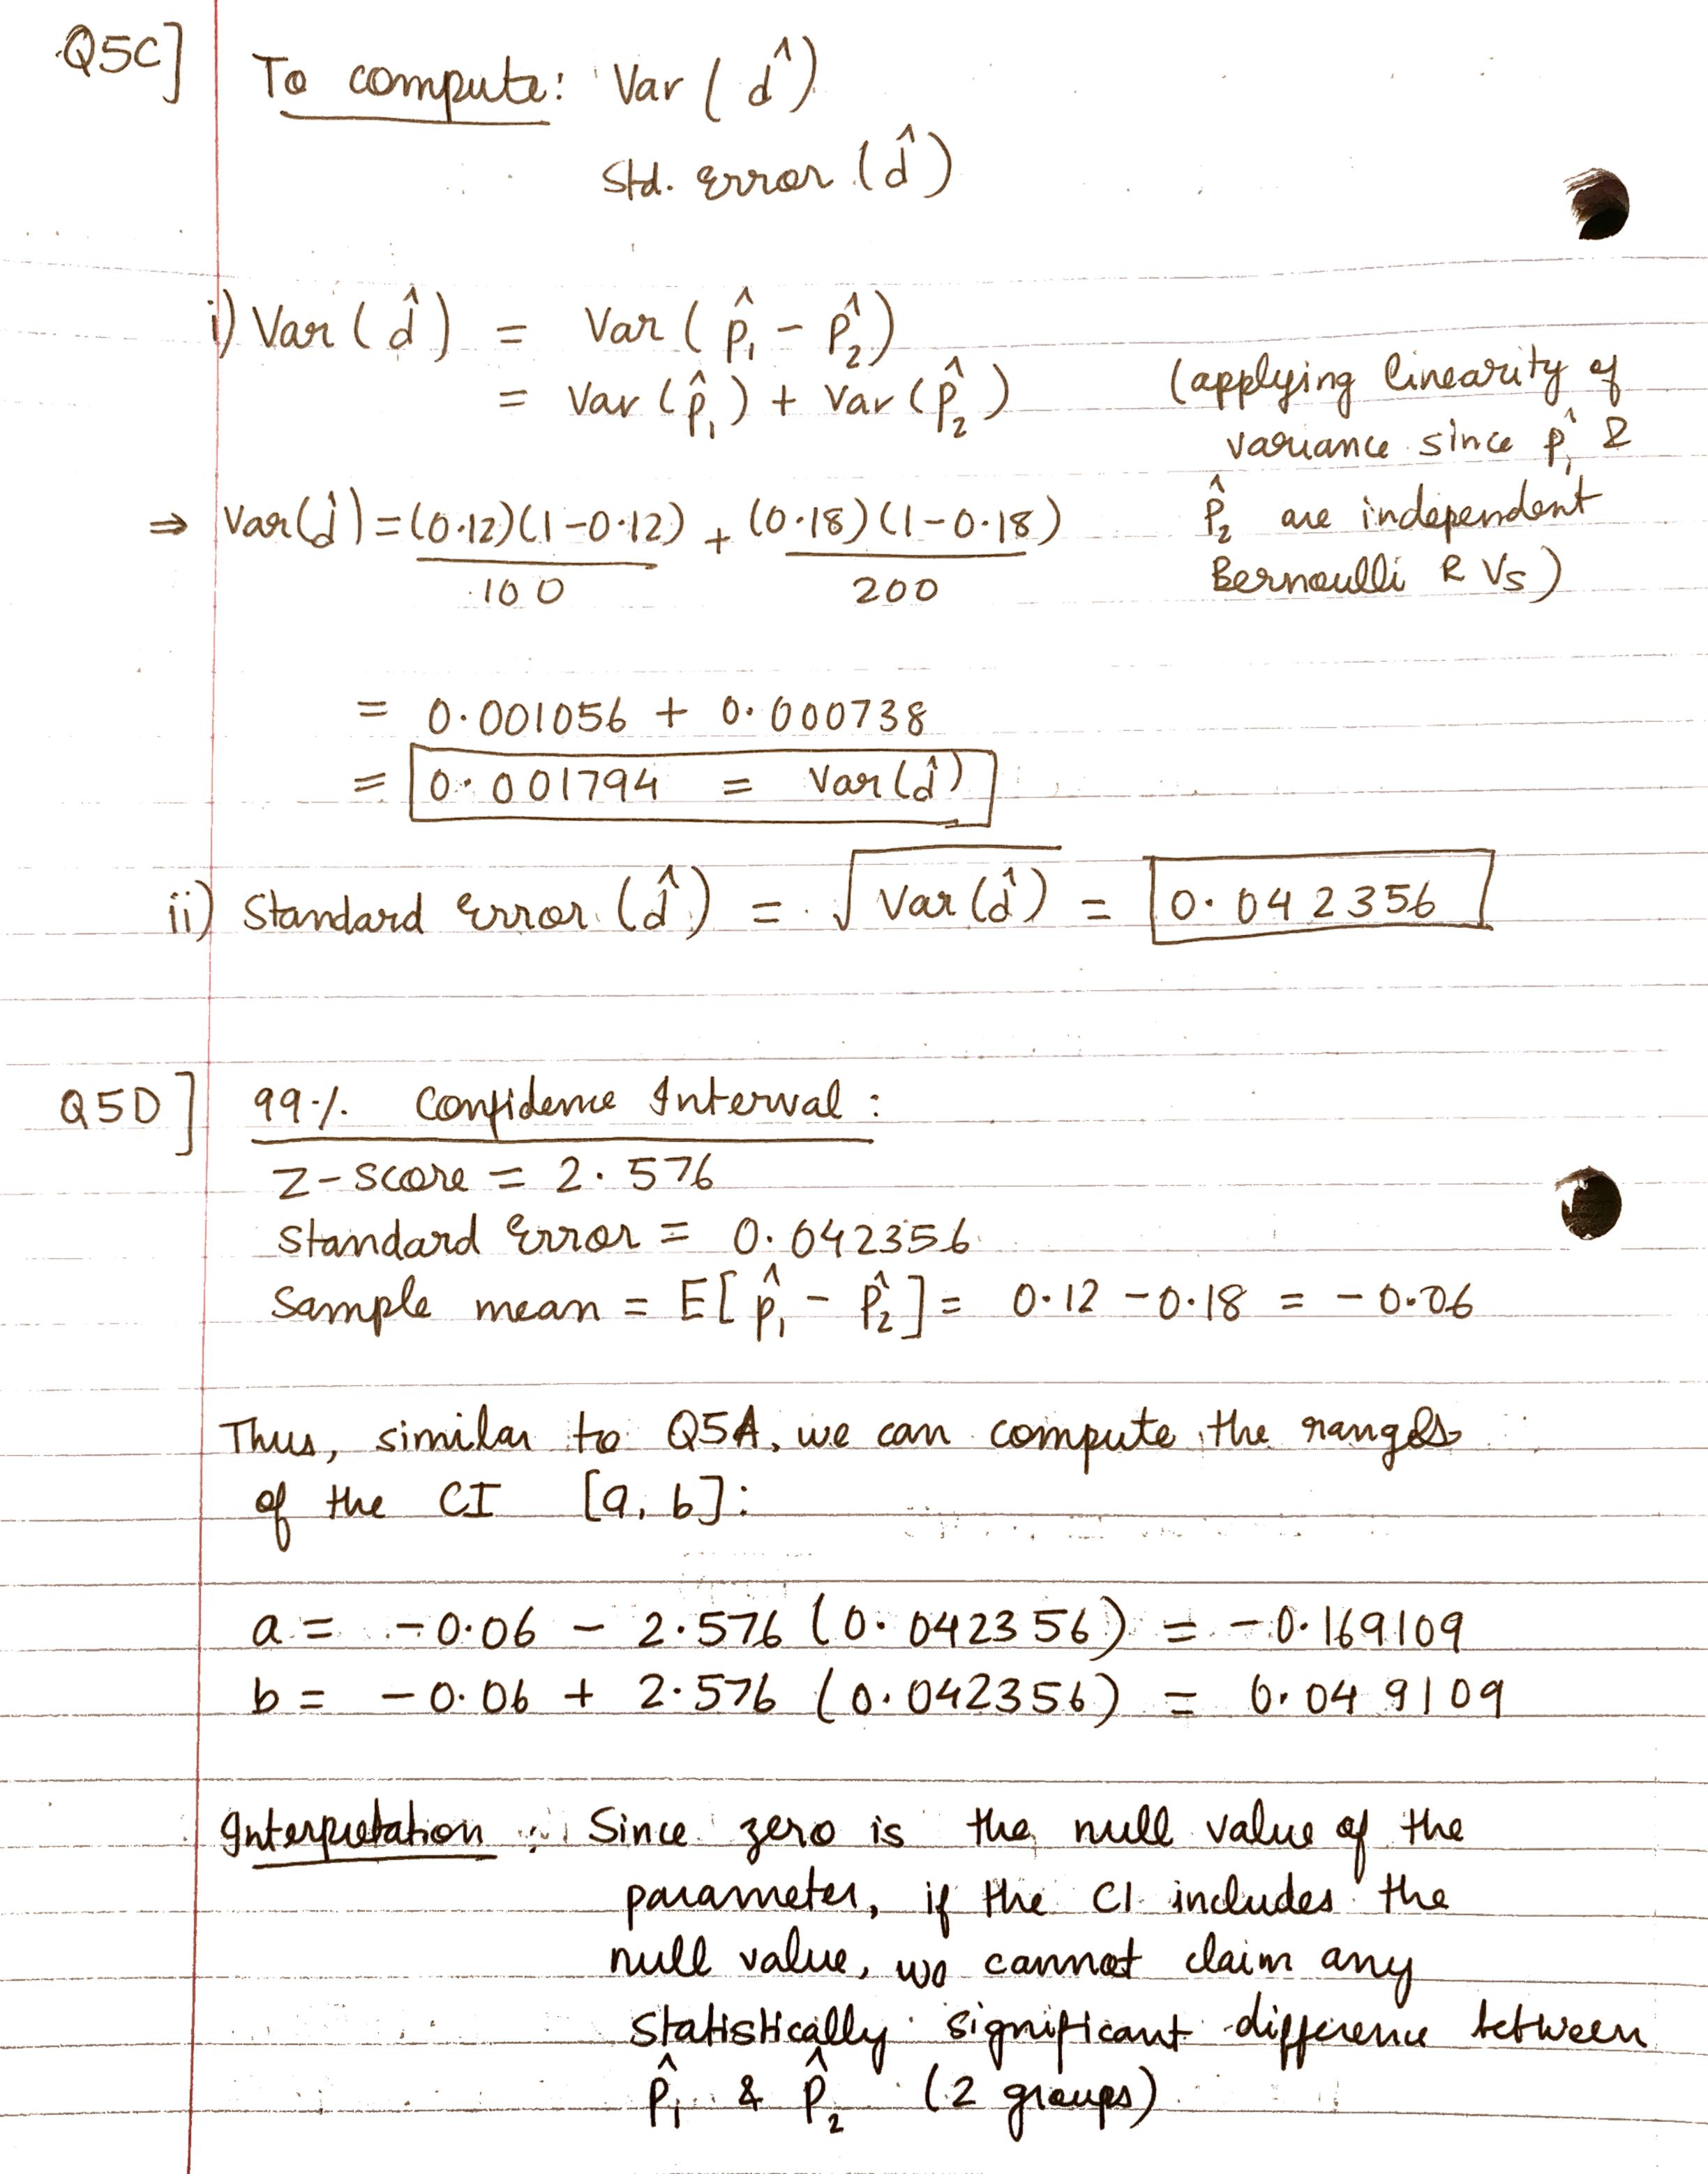 Q5C]
To compute: Var ( d̂ )
Std. Error ( d̂ )
i) Var ( d̂ ) = Var ( p̂₁ - p̂₂ )
= Var ( p̂₁ ) + Var ( p̂₂ )
(applying linearity of
variance since p̂₁ &
p̂₂ are independent
Bernoulli RVs)
⇒ Var(d̂) = (0.12)(1-0.12) + (0.18)(1-0.18)
100 200
= 0.001056 + 0.000738
= 0.001794 = Var(d̂)
ii) Standard Error (d̂) = √Var(d̂) = 0.042356
Q5D]
99% Confidence Interval:
Z-score = 2.576
Standard Error = 0.042356
Sample mean = E[ p̂₁ - p̂₂ ] = 0.12 - 0.18 = -0.06
Thus, similar to Q5A, we can compute the ranges
of the CI [a, b]:
a = -0.06 - 2.576 (0.042356) = -0.169109
b = -0.06 + 2.576 (0.042356) = 0.049109
Interpretation : Since zero is the null value of the
parameter, if the CI includes the
null value, we cannot claim any
statistically significant difference between
p̂₁ & p̂₂ (2 groups)